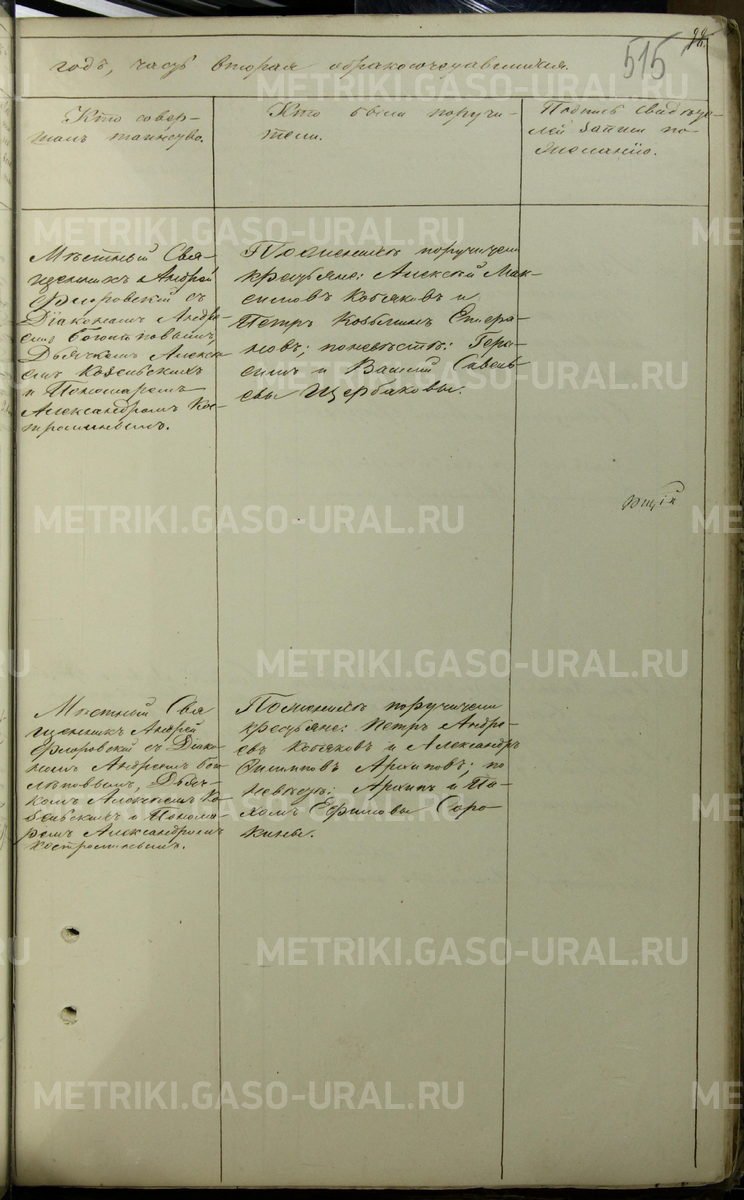 515
годъ, часть вторая о бракосочетавшихся.
Кто совер-
шалъ таинство.
Кто были поручи-
тели.
Подпись свидѣте-
лей записи по
желанію.
Мѣстный Свя-
щенникъ Андрей
Флоровскій съ
Діакономъ Андре-
емъ
Дьячкомъ Алексѣ-
емъ
и Пономаремъ
Александромъ Кос-
троминымъ.
По женихѣ поручители
крестьяне: Алексѣй Мак-
симовъ Кобяковъ и
Петръ
по невѣстѣ: Гера-
симъ и Василій Савель-
евы Щербаковы.
Мѣстный Свя
щенникъ Андрей
Флоровскій съ Діако-
номъ Андреемъ
Дьяч-
комъ Алексѣемъ
и Понома-
ремъ Александромъ
Костроминымъ.
По женихѣ поручители
крестьяне: Петръ Андре-
евъ Кобяковъ и Александръ
Филиповъ Архиповъ; по
невѣстѣ: Архипъ и Па-
хомъ Ефимовы Соро
кины.
METRIKI.GASO-URAL.RU